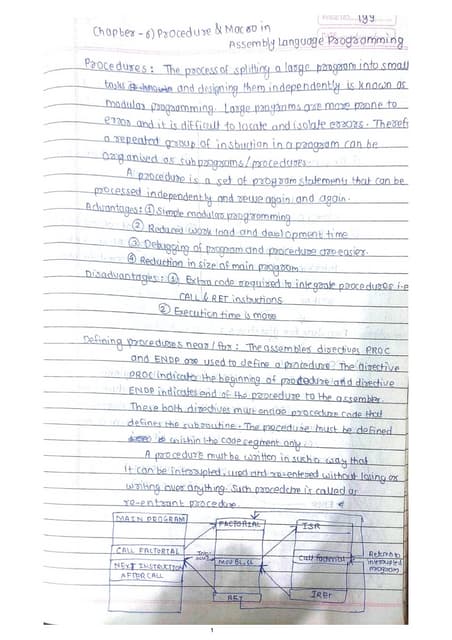 PAGE NO. 199
Chapter - 6) Procedure & Macro in
Assembly Language Programming
Procedures : The process of splitting a large program into small
tasks and designing them independently is known as
modular programming. Large programs are more prone to
error and it is difficult to locate and isolate errors. Therefo
a repeated group of instruction in a program can be
organised as subprograms/procedures.
A procedure is a set of program statements that can be
processed independently and reuse again and again.
Advantages : ① Simple modular programming
② Reduced work load and development time
③ Debugging of program and procedure are easier.
④ Reduction in size of main program
Disadvantages : ① Extra code required to integrate procedures i.e
CALL & RET instructions
② Execution time is more
Defining procedures near/far : The assembler directives PROC
and ENDP are used to define a procedure. The directive
PROC indicates the beginning of procedure and directive
ENDP indicates end of the procedure to the assembler.
These both directives must enclose procedure code that
defines the subroutine. The procedure must be defined
within the code segment only.
A procedure must be written in such a way that
it can be interrupted, used and re-entered without losing or
writing over anything. Such procedure is called as
re-entrant procedure.
MAIN PROGRAM
FACTORIAL
ISR
CALL FACTORIAL
NEXT INSTRUCTION
AFTER CALL
MOV BL, CL
RET
Call factorial
IRET
Return to
interrupted
program
1